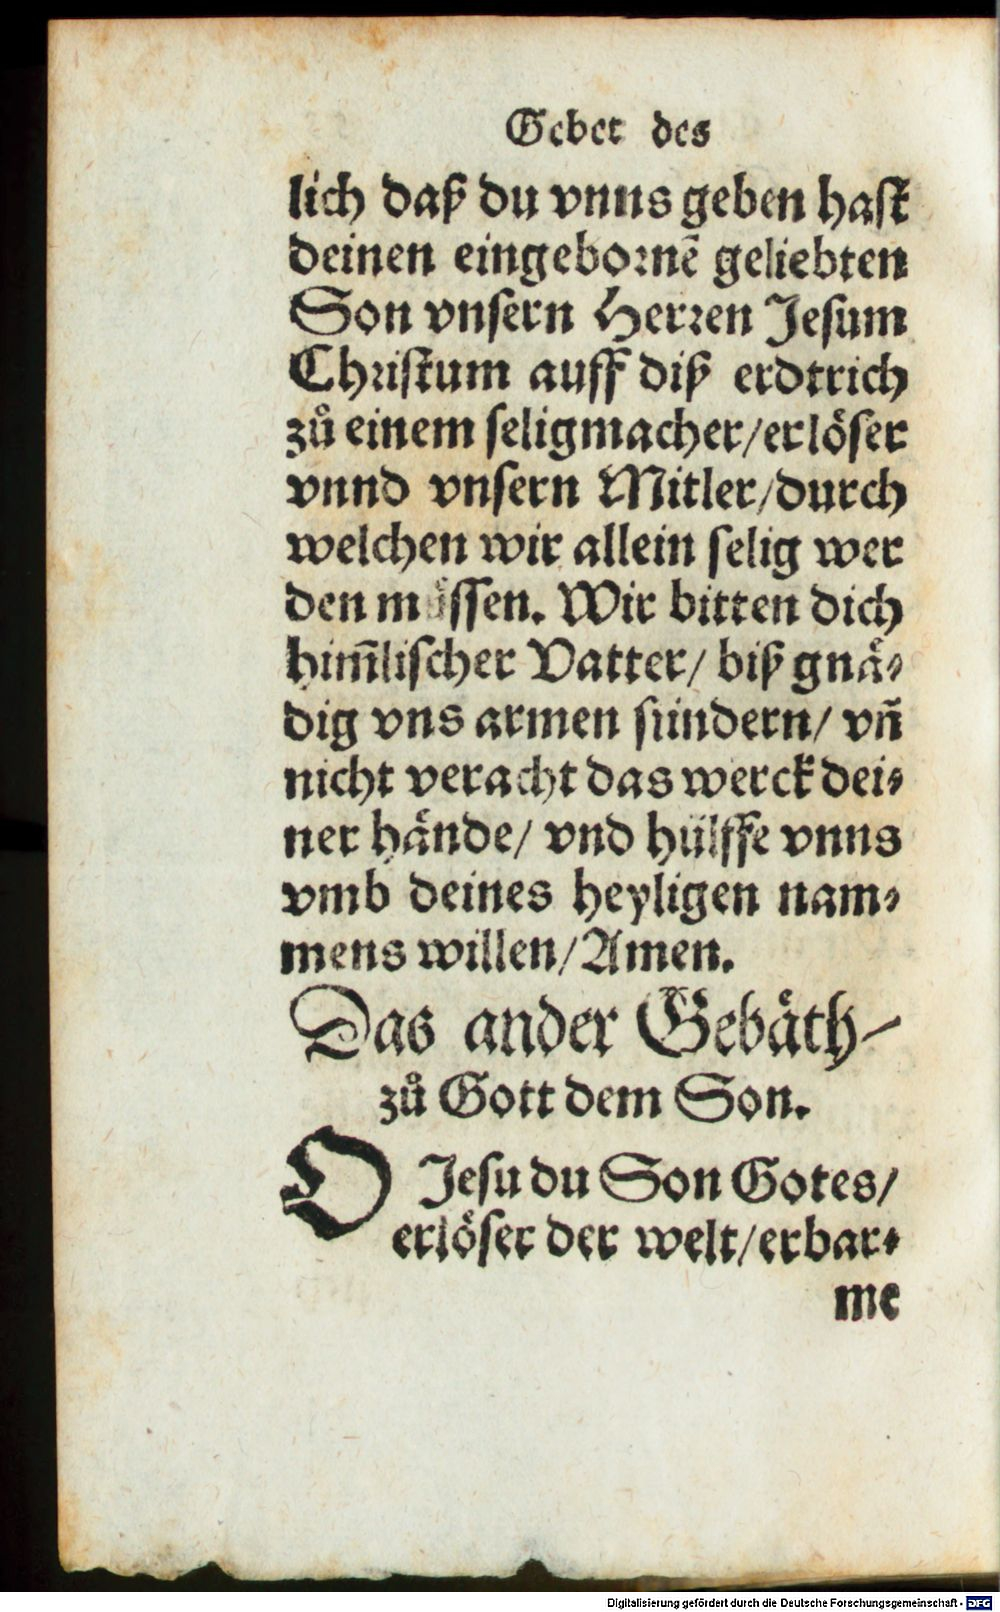 Gebet des
lich daß du vnns geben hast
deinen eingebornẽ geliebten
Son vnsern Herren Jesum
Christum auff diß erdtrich
zů einem seligmacher/erlöser
vnnd vnsern Mitler/durch
welchen wir allein selig wer
den müssen. Wir bitten dich
him̃lischer Vatter/ biß gnä⸗
dig vns armen sündern/ vñ
nicht veracht das werck dei⸗
ner hände/ vnd hülffe vnns
vmb deines heyligen nam⸗
mens willen/Amen.
Das ander Gebäth-
zů Gott dem Son.
O Jesu du Son Gotes/
erlöser der welt/erbar⸗
me
Digitalisierung gefördert durch die Deutsche Forschungsgemeinschaft - DFG